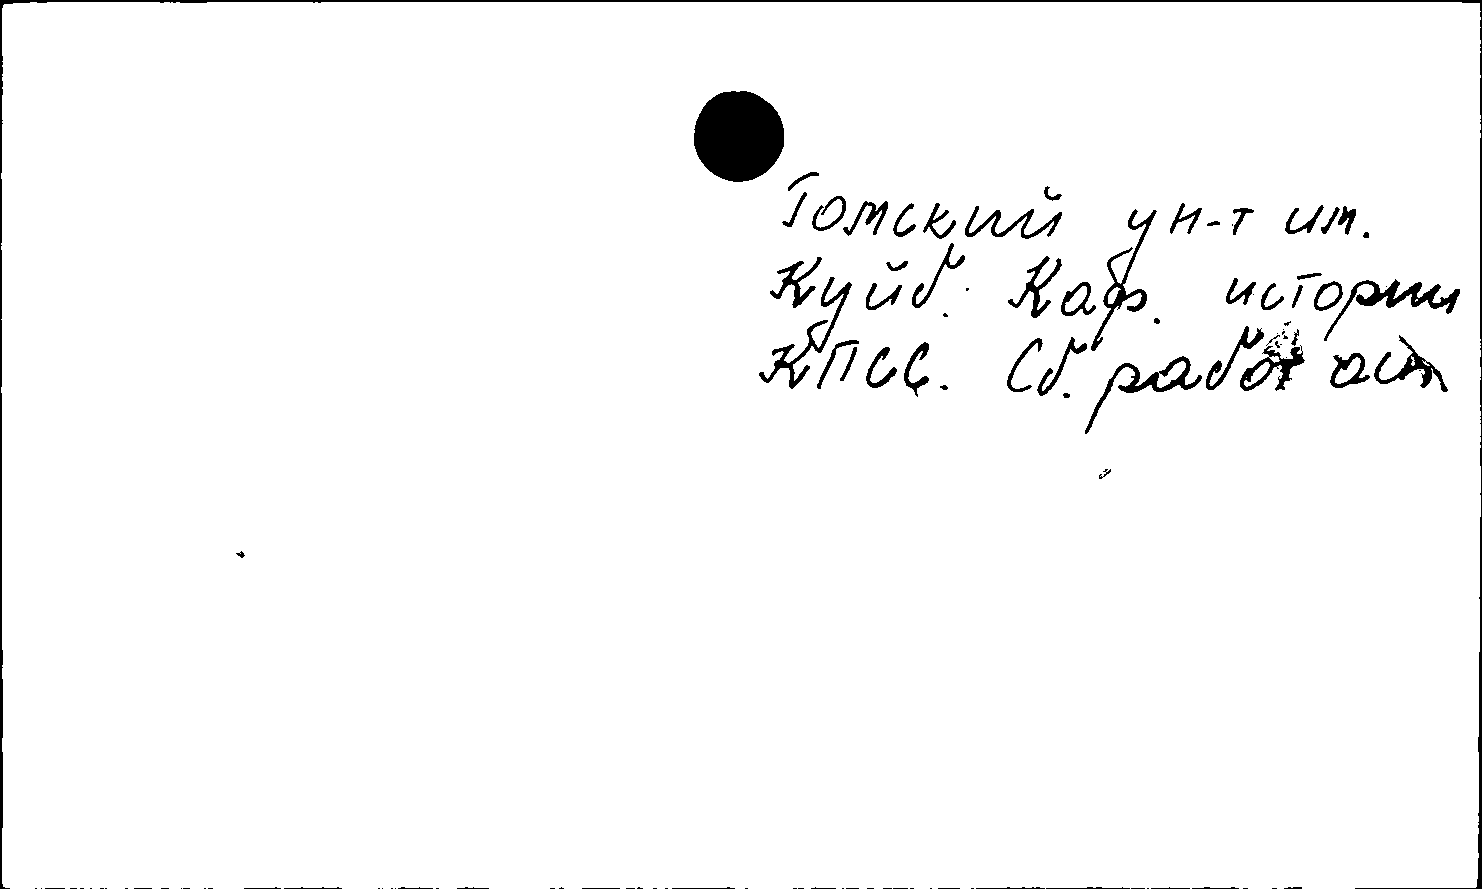 Томский ун-т им.
Куйб. Каф. истории
КПСС. Сб. работ асп